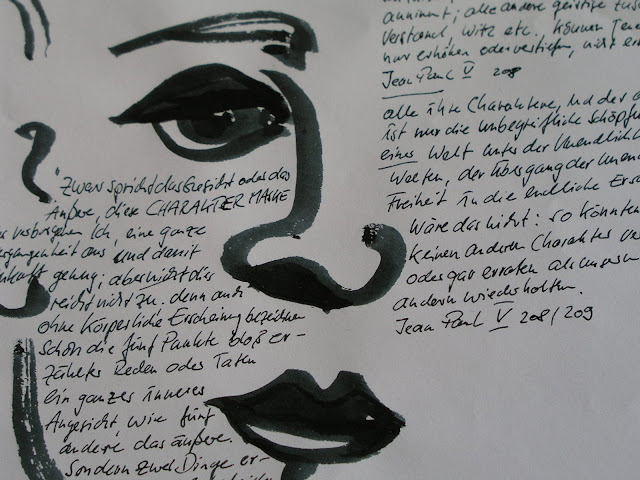 "Zwar spricht das Gesicht oder das
Äußere, diese CHARAKTER MASKE
verborgenen Ich, eine ganze
Vergangenheit aus und damit
Zukunft genug; aber nicht dies
reicht nicht zu. denn auch
ohne körperliche Erscheinung bezeichnen
schon die fünf Punkte bloß er-
zählter Reden oder Taten
ein ganzes inneres
Angesicht, wie fünf
andere das äußere.
Sondern zwei Dinge er-
annimmt; alle andere geistige
Verstand, Witz etc. können jene
nur erhöhen oder vertiefen, nicht
Jean Paul V 208
alle ihre Charaktere, und der
ist nur die unbegreifliche
einer Welt unter der
Welten, der Übergang der
Freiheit in die endliche
Wäre das nicht: so könnten
keinen anderen Charakter
oder gar erraten als unsern
andern wiederholten.
Jean Paul V 208/209